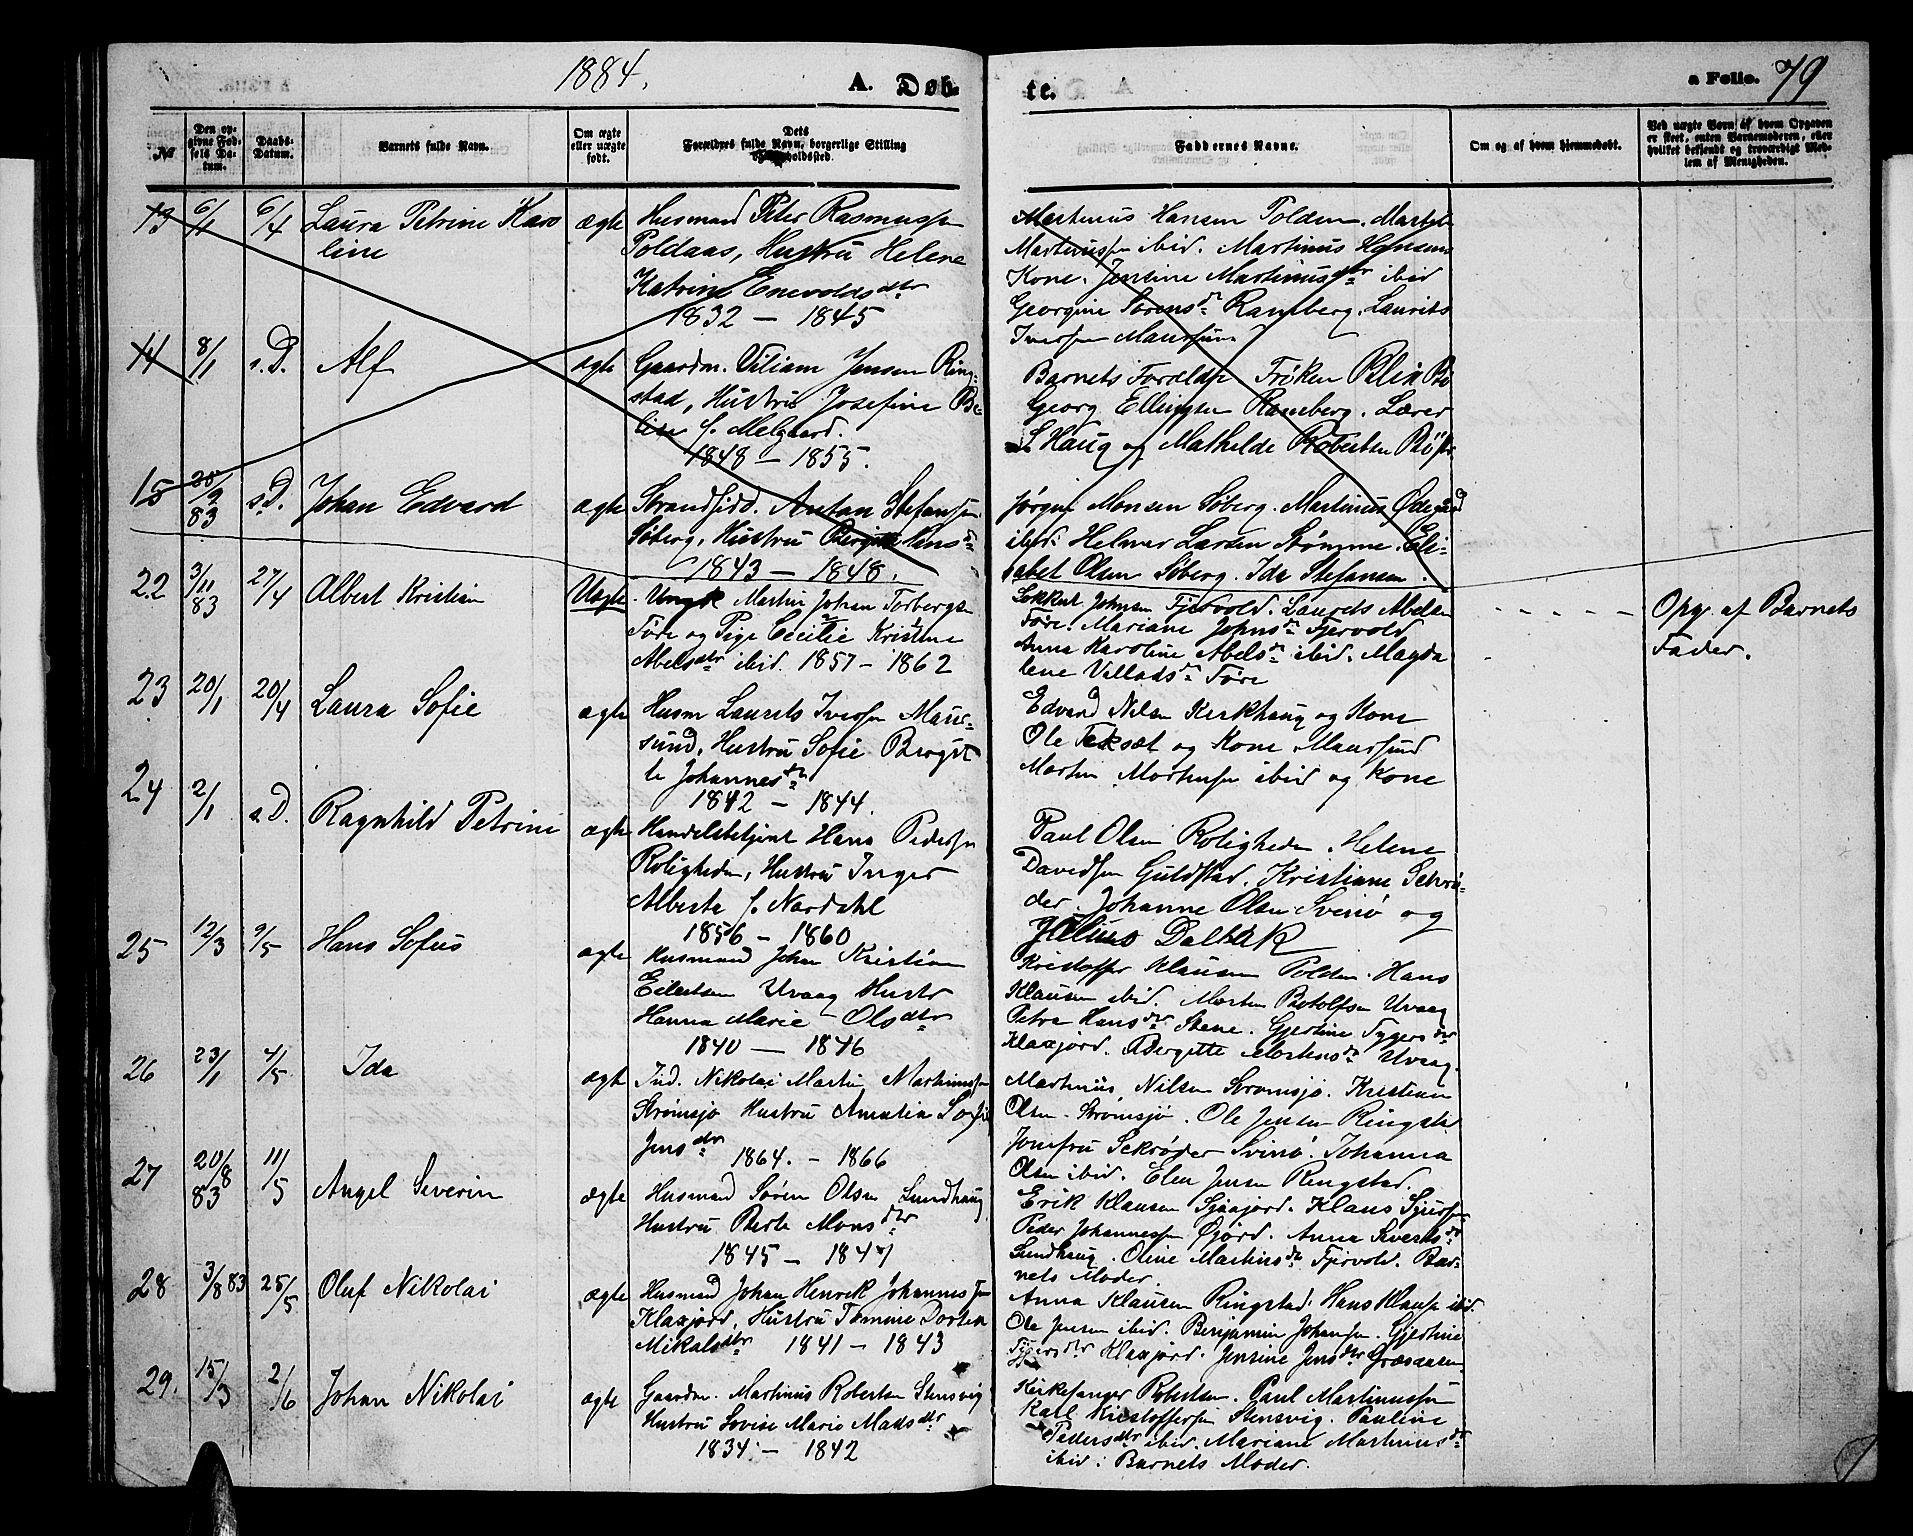 1884.
A. Døb-
te.
a Folio.
79
№
Den op-
givne Fød-
sels Da-
tum.
Daabs-
Datum.
Barnets fulde Navn.
Om ægte
eller uægte
født.
Dets
Forældres fulde Navn, borgerlige Stilling
og Opholdssted.
Faddernes Navne.
Om og af hvem hjemmedøbt.
Ved uægte Børn af hvem Opgaven
er skeet, enten Barnemoderen, eller
hvilket bekjendt og troværdigt Med-
lem af Menigheden.
13 6/1 6/4 Laura Petrine Karo
line
ægte
Husmand Peter Rasmussen
Poldaas, Hustru Helene
Katrine Enevoldsdtr
1832 - 1845
Martinus Hansen Polden.
Martinussen ibid. Martinus Hansens
Kone. Jentine Martinusdtr ibid
Georgine Sørensd. Ramberg. Laurits
Iversen Maursund
14 8/1 s.D. Alf
ægte
Gaardm. Viliam Jensen Ring-
stad, Hustru Josefine Be-
line f. Melgaard.
1848 - 1855.
Barnets Foræld. Frøken
Georg Ellingsen Ramberg. Lærer
Haug og Mathilde Robertsen
15 83 s.D. Johan Edvard
ægte
Strandsidd. Anton Stefansen
Søberg, Hustru
1843 - 1848.
Jørgen Monsen Søberg. Martinus Ødegård
ibid: Helmer Larsen Strømme. Eli-
sabet Olsen Søberg. Ida Stefansen.
22 3/11 83 27/4 Albert Kristian
Uægte
Ungk Martin Johan Torbergs
Føre og Pige Cecilie Kristine
Abelsdtr ibid. 1857 - 1862
Johnsen Fjervold. Laurits Abelsen
Føre. Mariane Johnsd. Fjervold
Anna Karoline Abelsd. ibid. Magda
lene Valladsd. Føre
Opg. af Barnets
Fader.
23 20/1 20/4 Laura Sofie
ægte
Husm Laurits Iversen Maur-
sund, Hustru Sofie Bergit
te Johannesdtr
1842 - 1844.
Edvard Nilsen Kirkhaug og Kone
Ole Teksæt og Kone Maursund
Morten Mortensen ibid og Kone
24 2/1 s.D. Ragnhild Petrine
ægte
Handelsbetjent Hans Pedersen
Roligheden, Hustru Inger
Alberte f. Nordahl
1856 - 1860
Paul Olsen Roligheden. Helene
Davidsen Guldstad. Kristiane Schrø-
der. Johanne Olsen Svinø og
Julius Dalbak
25 12/3 9/5 Hans Sofus
ægte
Husmand Johan Kristian
Eilertsen Uvaag Hustr
Hanna Marie Olsdtr
1840 - 1846
Kristoffer Klausen Polden. Hans
Klausen ibid. Morten Botolfsen Uvaag
Petra Hansdtr Stene. Gjertine Tygersdtr
Klaxjord. Bergitte Mortensd. Uvaag.
26 23/1 4/5 Ida
ægte
Ind. Nikolai Martin Martinussen
Strømsjø Hustru Amalia Sofie
Jensdtr 1864. - 1866
Martinus Nilsen Strømsjø. Kristian
Olsen Strømsjø. Ole Jensen Ringstad
Jomfru Schrøder Svinø. Johanna
Olsen ibid. Elen Jensen Ringstad.
27 20/8 83 11/5 Angel Severin
ægte
Husmand Søren Olsen Sundhaug
Hustru Berte Monsdtr
1845 - 1847
Erik Klausen Sjaajord. Klaus Sjursen
Peder Johannessen Øjord. Anna Sivertsdtr
Sundhaug. Oline Martinsd. Fjervold. Bar-
nets Moder.
28 3/8 83 25/5 Oluf Nikolai
ægte
Husmand Johan Henrik Johannessen
Klaxjord, Hustru Tomine Dortea
Mikalsdtr 1841 - 1843
Anna Klausen Ringstad. Hans Klausen ibid.
Ole Jensen ibid. Benjamin Johansen. Gjertine
Tygersdtr Klaxjord. Jensine Jensdtr Græsaasen
29. 15/3 2/6 Johan Nikolai
ægte
Gaardm. Martinus Robertsen Stensvig
Hustru Lovise Marie Madsdtr
1834 - 1842
Kirkesanger Robertsen. Paul Martinussen
Karl Kristoffersen Stensvig. Pauline
Pedersdtr ibid. Mariane Martinusdtr
ibid: Barnets Moder.